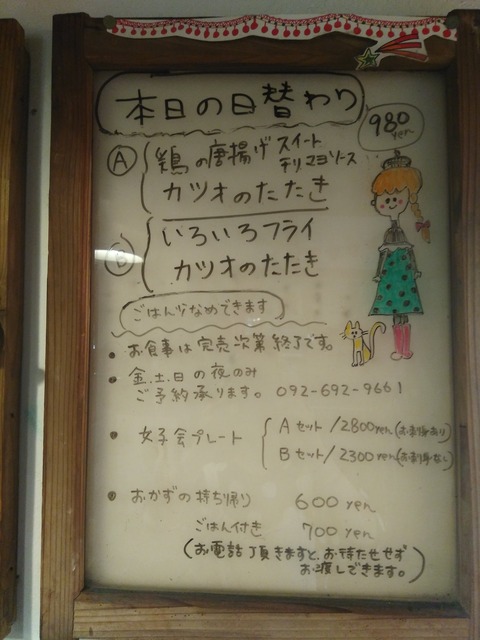 本日の日替わり
980
yen
A 鶏の唐揚げ スイート
チリマヨソース
カツオのたたき
いろいろフライ
カツオのたたき
ごはん少なめできます
お食事は完売次第終了です。
金.土.日の夜のみ
ご予約承ります。 092-692-9661
女子会プレート
Aセット/2800yen(お刺身あり)
Bセット/2300yen(お刺身なし)
おかずの持ち帰り 600 yen
ごはん付き 700 yen
(お電話頂きますと、お待たせせず
お渡しできます。)